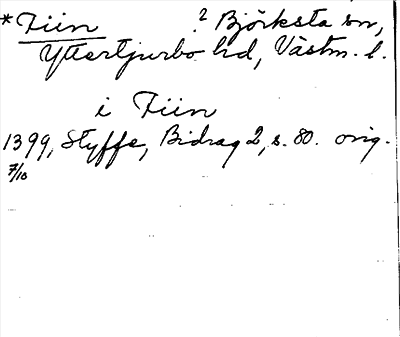 *Fiin ? Björksta sn,
Yttertjurbo hd, Västm. l.
i Fiin
1399, Styffe, Bidrag 2, s. 80. orig.
7/10